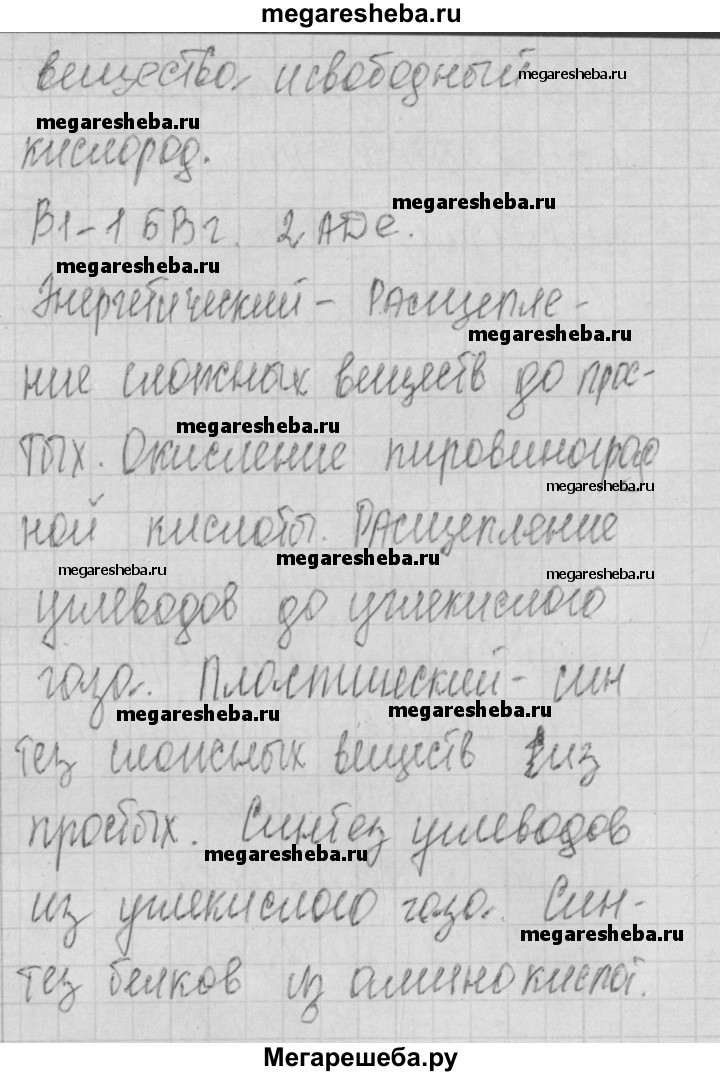 megaresheba.ru
вещества и свободный megaresheba.ru
megaresheba.ru
кислород.
megaresheba.ru
В1-1 БВг. 2 АДе.
megaresheba.ru
Энергетический - Расщепле-
megaresheba.ru
ние сложных веществ до прос-
megaresheba.ru
тых. Окисление пировиноград
megaresheba.ru
ной кислоты. Расщепление
megaresheba.ru
megaresheba.ru megaresheba.ru
углеводов до углекислого
газа. Пластический - син
megaresheba.ru megaresheba.ru
тез сложных веществ из
простых. Синтез углеводов
megaresheba.ru
из углекислого газа. Син-
megaresheba.ru
тез белков из аминокислот.
Мегарешеба.ру